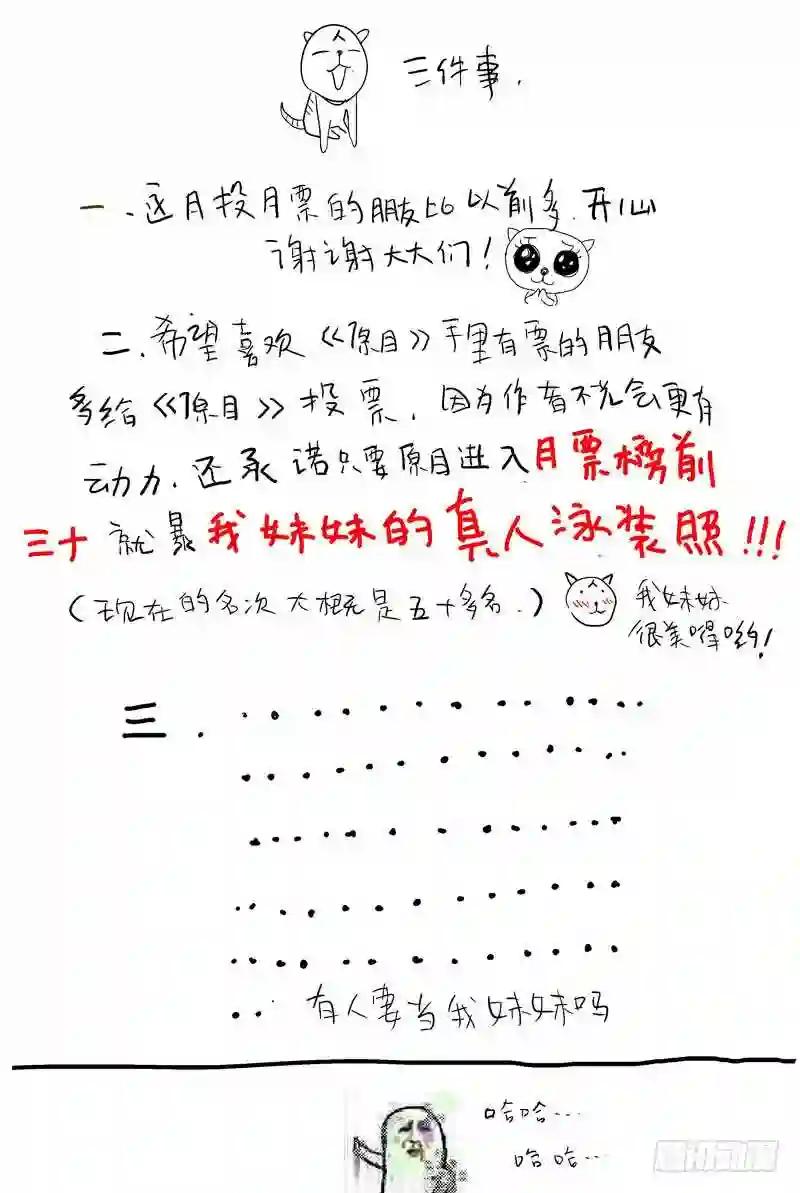 三件事.
一、这月投月票的朋友比以前多.开心
谢谢大大们!
二.希望喜欢《原目》手里有票的朋友
多给《原目》投票.因为作者不光会更有
动力.还承诺只要原目进入月票榜前
三十就暴我妹妹的真人泳装照!!!
(现在的名次大概是五十多名.)
我妹妹
很美得哟!
三.
..有人要当我妹妹吗
哈哈...
哈哈...